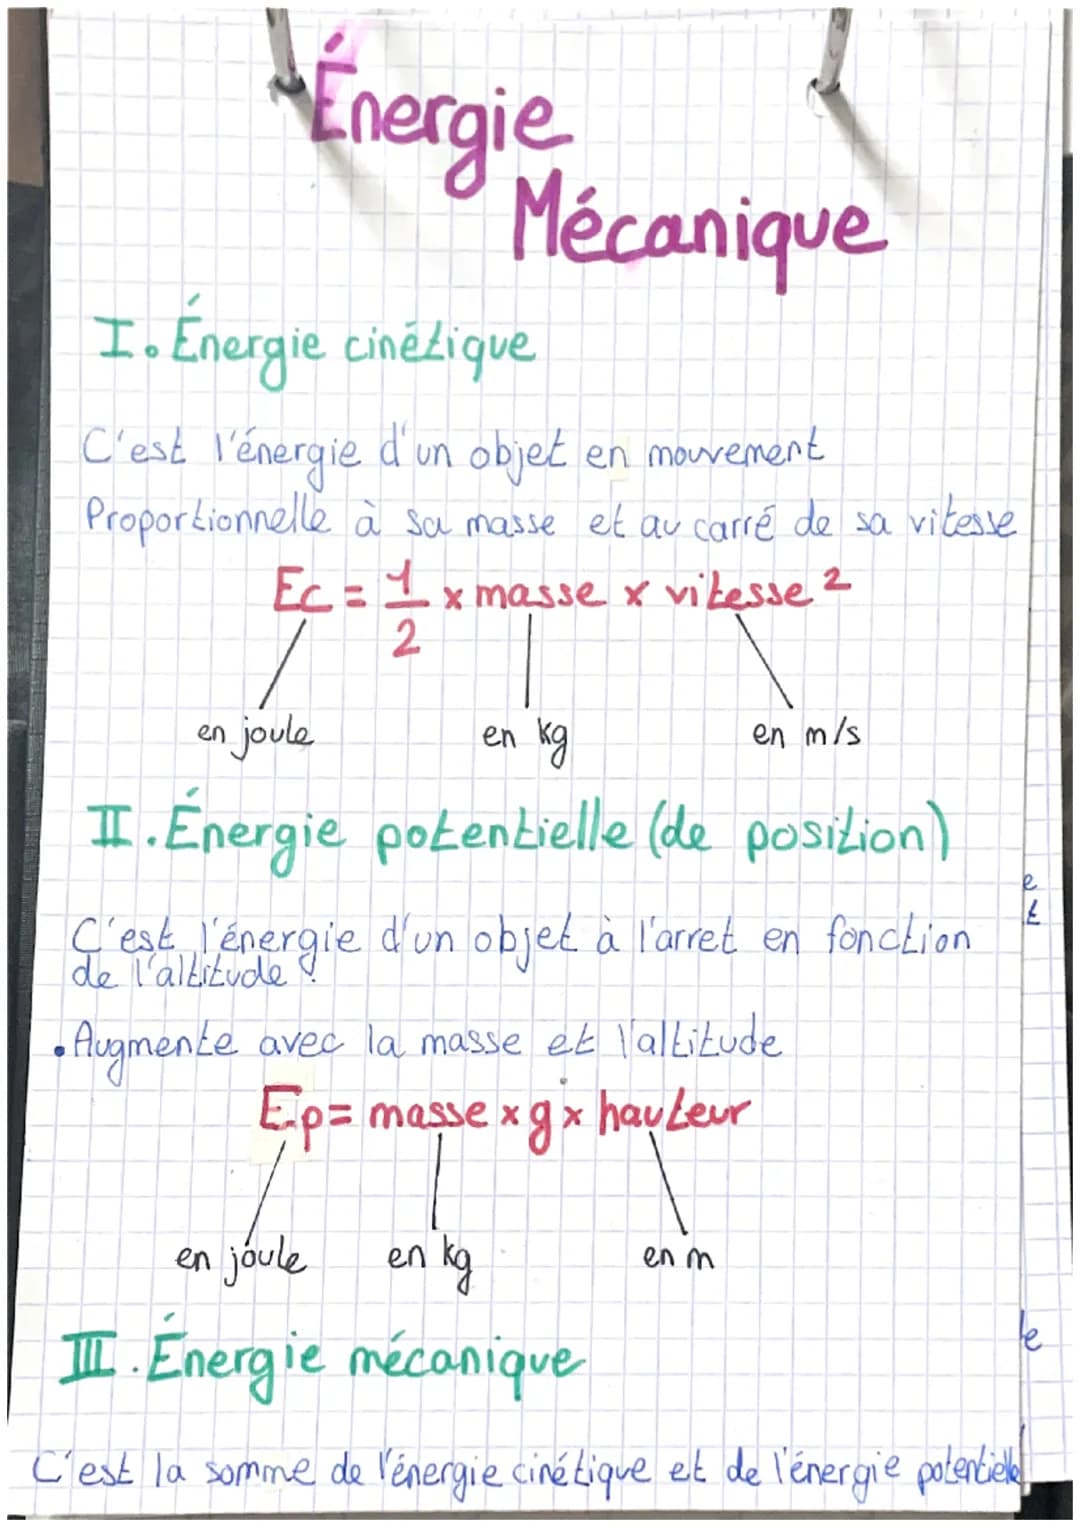 Énergie
Mécanique
I. Énergie cinétique
C'est l'énergie d'un objet en mouvement
Proportionnelle à sa masse et au carré de sa vitesse
Ec = 1/2 x masse x vitesse ²
en joule en kg en m/s
II. Énergie potentielle (de position)
C'est l'énergie d'un objet à l'arret en fonction
de l'altitude.
• Augmente avec la masse et l'altitude
Ep = masse x g x hauteur
en joule en kg en m
III. Énergie mécanique
C'est la somme de l'énergie cinétique et de l'énergie potentielle